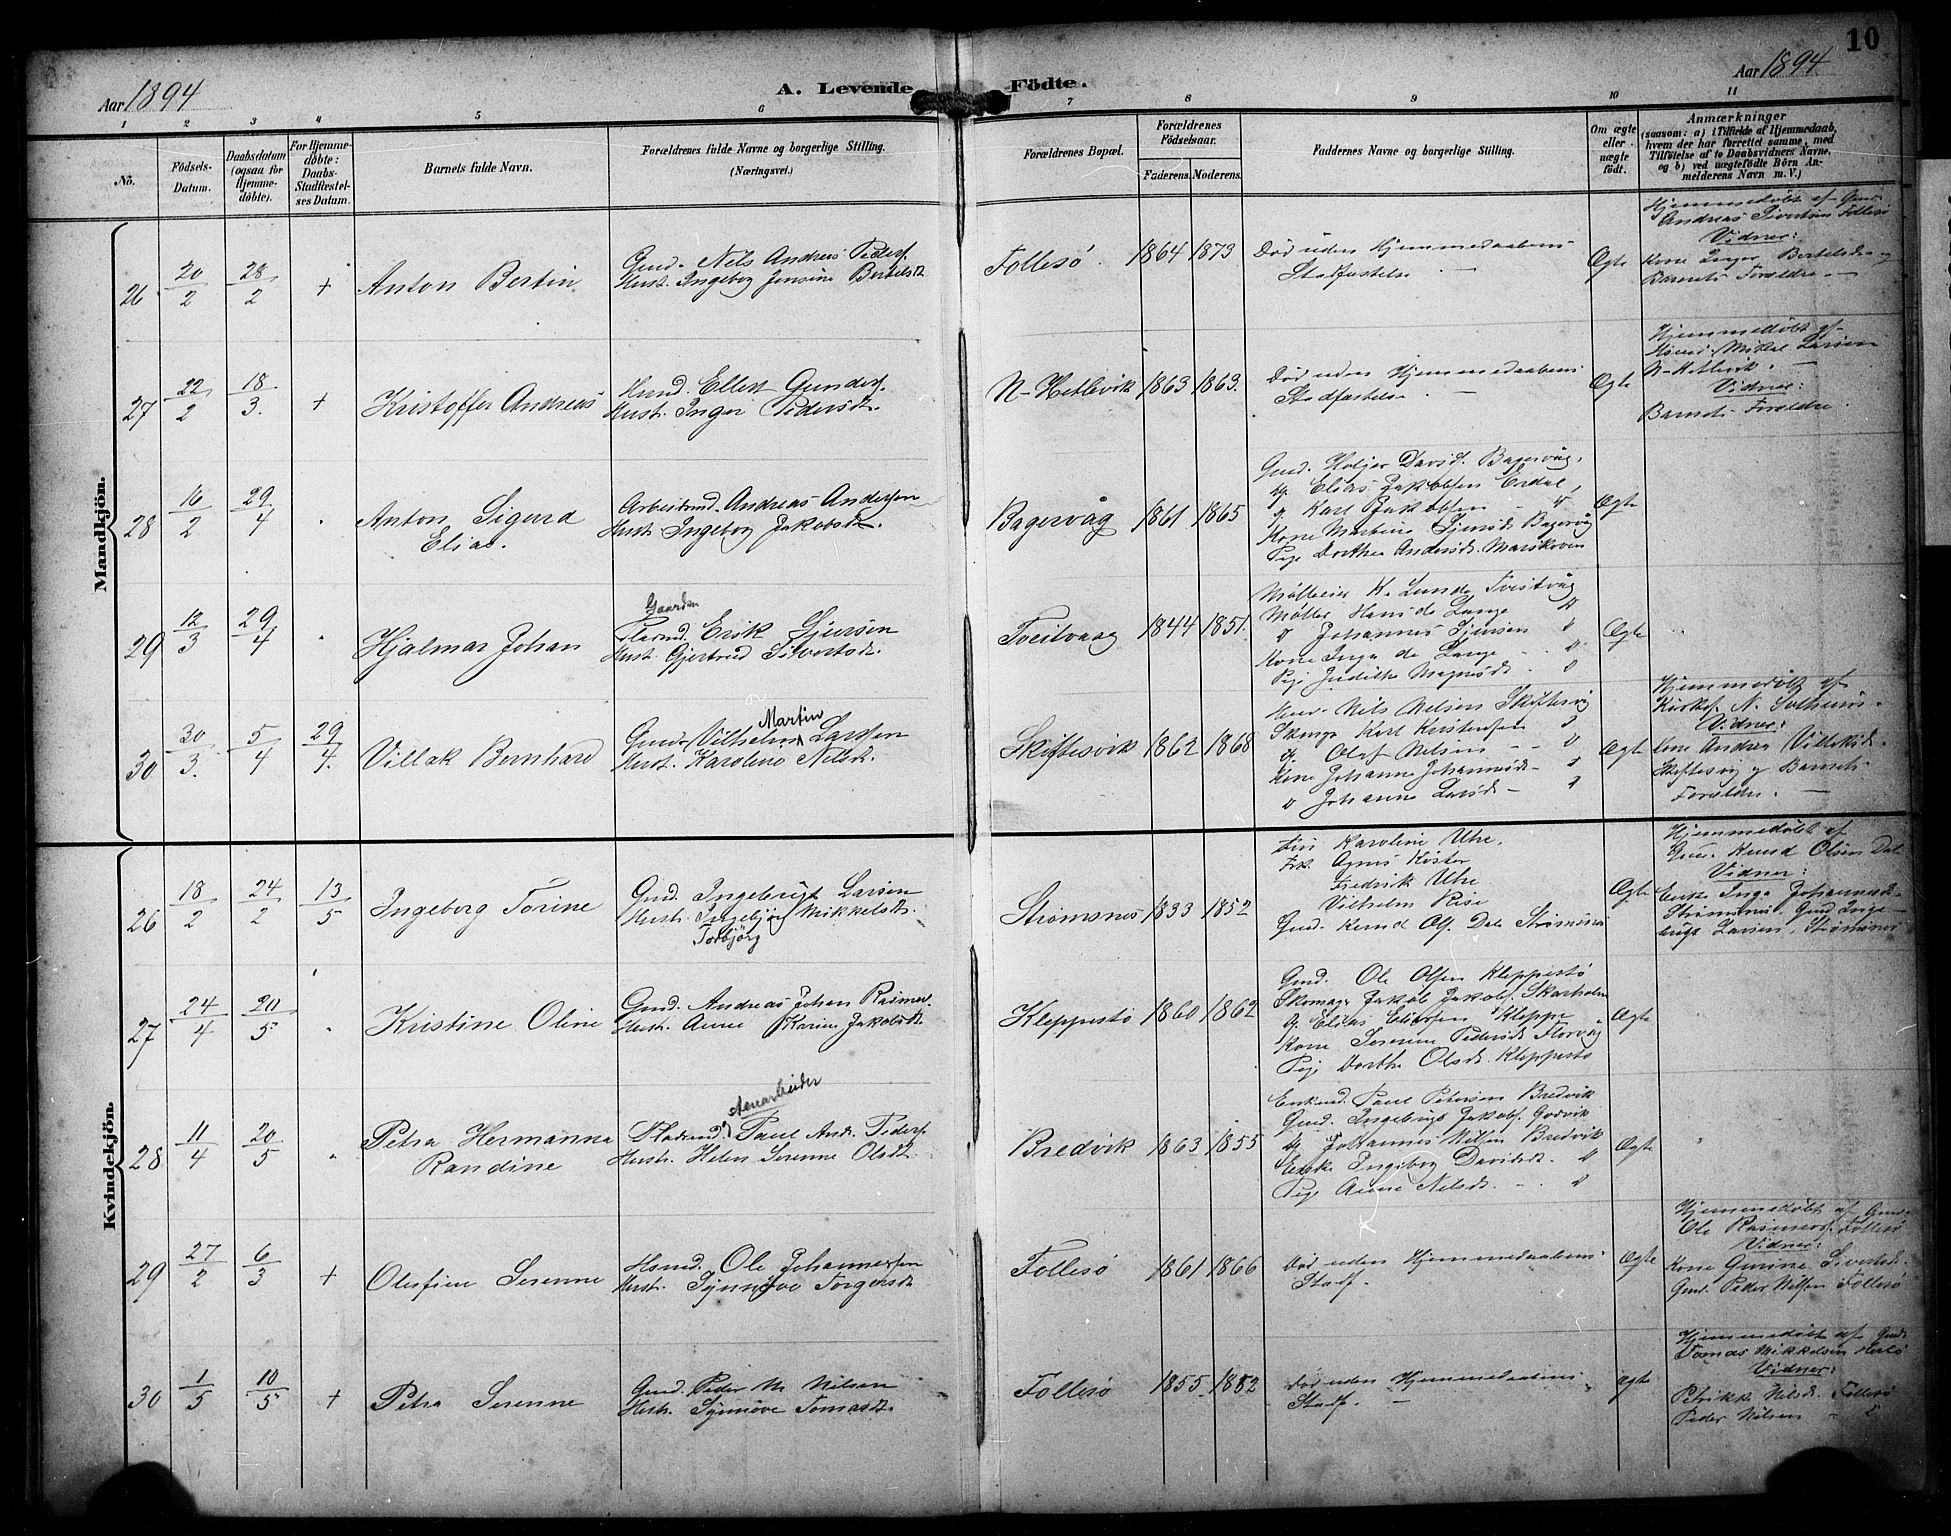 10
Aar 1894
A. Levende Födte.
Aar 1894
1 2 3 4 5 6 7 8 9 10 11
No.
Födsels-Datum.
Daabsdatum (ogsaa for Hjemmedöbte).
For Hjemmedöbte: Daabs-Stadfæstelses Datum.
Barnets fulde Navn.
Forældrenes fulde Navne og borgerlige Stilling.
(Næringsvei.)
Forældrenes Bopæl.
Forældrenes Födselsaar.
Faderens. Moderens.
Faddernes Navne og borgerlige Stilling.
Om ægte eller uægte födt.
Anmærkninger
(saasom: a) i Tilfælde af Hjemmedaab, hvem der har forrettet samme, med Tilföielse af to Daabsvidners Navne, og b) ved uægtefödte Börn Anmelderens Navn m. V.)
Mandkjön.
26 20/2 28/2 + Anton Bertin
Gmd. Nels Andreas Peders.
Hust. Ingebog Jensine Bertelsdt.
Follesø 1864 1873
Død uden Hjemmedaabens
Stadfæstelse
Ægte
Hjemmedøbt af Gmd.
Andreas Sivertsen Follesø
Vidner:
Kone Inger Bertelsdr. og
Barnets Forældre.
27 22/2 18/3. + Kristoffer Andreas
Hmd. Ellert Gunders.
Hust. Inger Pedersdt.
N-Hetlevik 1863 1863.
Død uden Hjemmedaabens
Stadfæstelse
Ægte
Hjemmedøbt af
Mikal Larsen
N-Hetlevik.
Vidner:
Barnets Forældre.
28 16/2 29/4 Anton Sigurd
Elias.
Arbeidsmd. Andreas Andersen
Hust. Ingebog Jakobsdt.
Bagervåg 1861 1865
Gmd. Holger Davids. Bagervåg.
Elias Jakobsen Erdal
Karl Jakobsen
Kone Martine Bagervåg
Pige Dorthea Andersdt. Marikoven
Ægte
29 12/3 29/4 Hjalmar Johan
Gaardm
Erik Sjursen
Hust. Gjertrud Sivertsdt.
Tveitvaag 1844 1851.
K. Lunde Tveitvåg
Møller Hans de Lange
Johannes Sjursen
Kone Inga de Lange
Pige Judithe Magnusdt.
Ægte
30 30/3. 5/4 29/4. Villak Bernhard
Martin
Gmd. Vilhelm Larsen
Hust. Karoline Nelsdt.
Skiftesvik 1862 1868
Nils Nelsen Skiftesvig
Karl Kristensen
Olaf Nelsen
Kone Johanne Johannesdt.
Johanne Larsdt.
Ægte
Hjemmedøbt af
Kirkes. N. Solheims
Vidner:
Kone Andrea
Skiftesvig og Barnets
Forældre.
Kvindekjön.
26 18/2 24/2 13/5 Ingeborg Torine
Gmd. Ingebrigt Larsen
Hustr. Ingebjörg Mikkelsdt.
Torbjörg
Strømsnes 1833 1852
Karoline Uhre.
Frk. Agnes Köster
Fredrik Uhre
Vilhelm
Gmd. Knud Ols. Dale Strømsnes
Ægte
Hjemmedøbt af
Gmd. Knud Olsen Dale
Vidner:
Enke Inga Johannesdt.
Strømsnes. Gmd. Inge-
brigt Larsen, Strømsnes
27 24/4 20/5 Kristine Oline
Gmd. Andreas Johan Rasmus.
Hustr. Anne Karine Jakobsdt.
Kleppestø 1860 1862
Gmd. Ole Olsen Kleppestø
Skomag. Jakob Jakobs. Skarholm
Elias Eliassen Kleppe
Kone Serenne Pedersdt. Florvåg
Pige Dorthe Olsdt. Kleppestø
Ægte
28 11/4 20/5 Petra Hermanna
Randine
Stenarbeider
Paul And. Peders.
Hustr. Helen Serenne Olsdt.
Bredvik 1863 1855
Enkemd. Paul Petersen Bredvik
Gmd. Ingebrigt Jakobs. Godvik
Johannes Nilsen Bredvik
Enke Ingebog Davidsdt.
Pige Anne Nelsdt.
Ægte
29 27/2 6/3 + Olefine Serenne
Hsmd. Ole Johannessen
Hustr. Synnöve Torgersdt.
Follesø 1861 1866
Død uden Hjemmedaabens
Stadf.
Ægte
Hjemmedøbt af Gmd.
Ole Rasmus. Follesø
Vidner:
Kone Gurine Sivertsdt.
Gmd. Peder Nilsen Follesø
30 1/5 10/5 + Petra Serenne
Gmd. Peder M. Nilsen
Hustr. Synnöve Tomasdt.
Follesø 1855 1852
Død uden Hjemmedaabens
Stadf.
Ægte
Hjemmedøbt af Gmd.
Tomas Mikkelsen Herlø
Vidner:
Petrikke Nelsdt. Follesø
Peder Nilsen